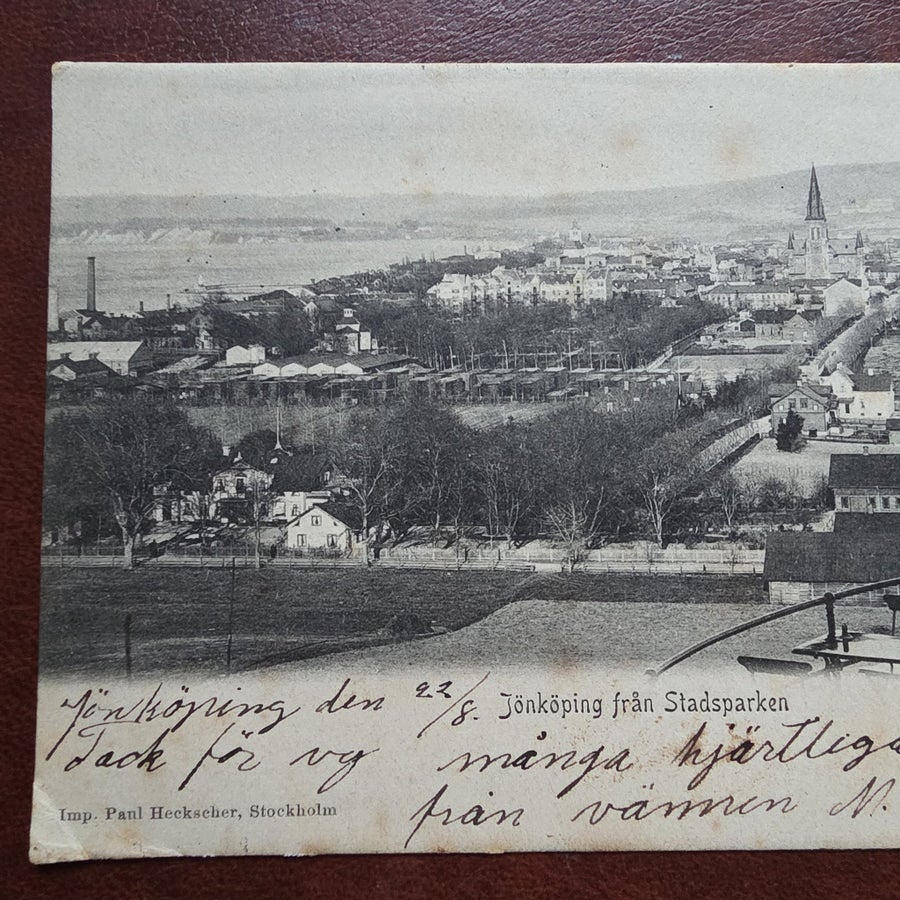 Jönköping den 22/8.
Jönköping från Stadsparken
Tack för vy många hjärtliga
från vännen M.
Imp. Paul Heckscher, Stockholm